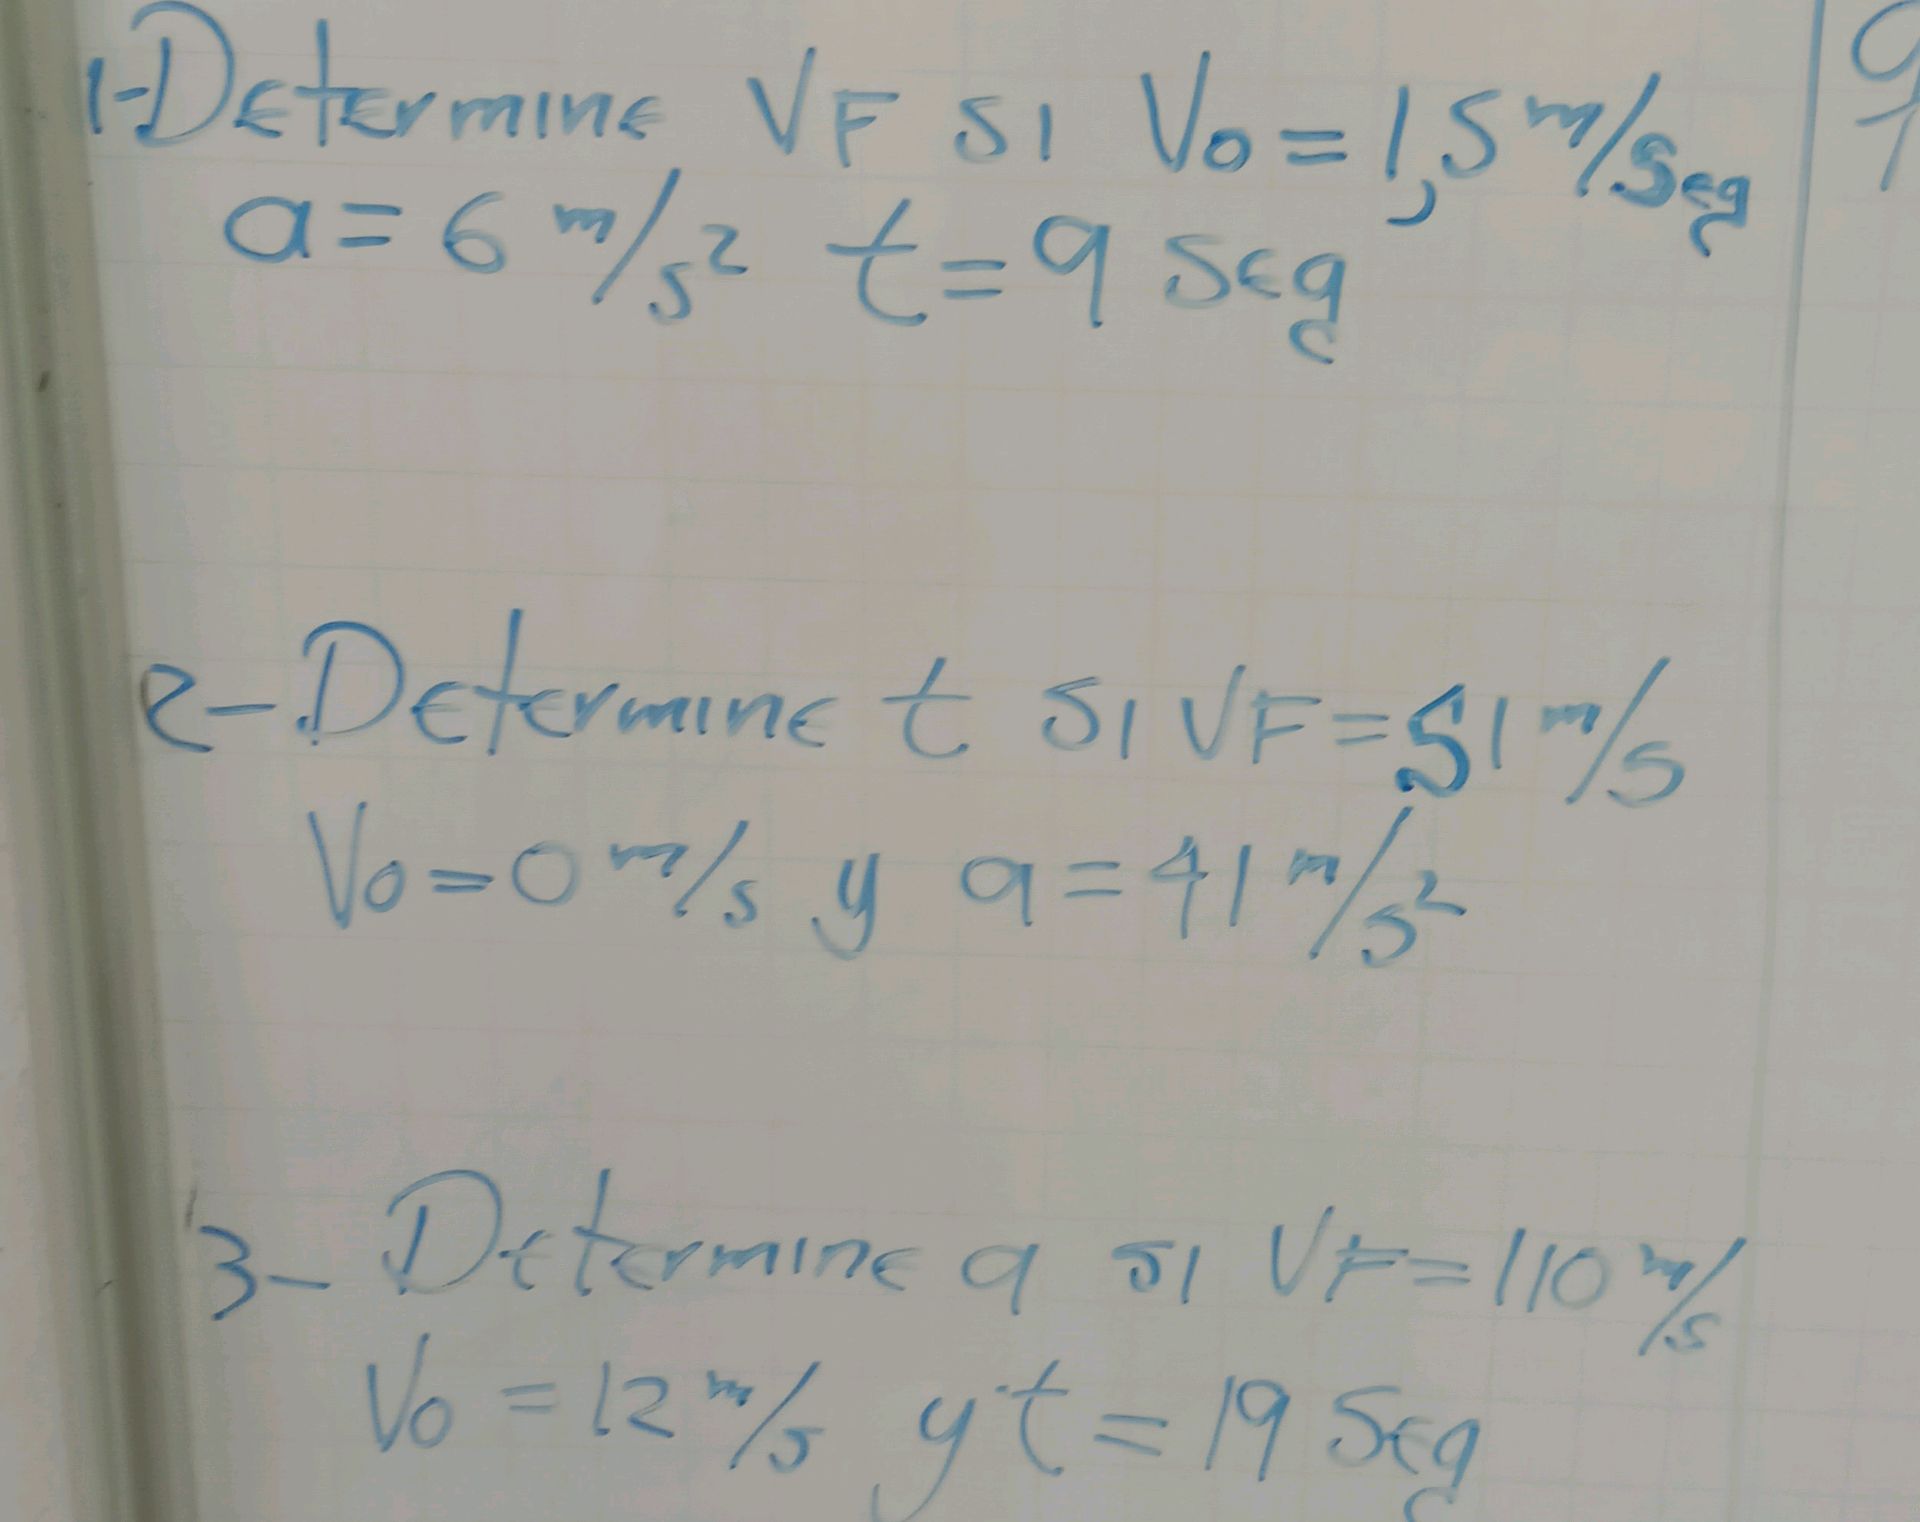 1-Determine VF si Vo = 1,5 m/seg
a = 6 m/s² t = 9 seg
2- Determine t si VF = 51 m/s
Vo = 0 m/s y a = 41 m/s²
3- Determine a si VF = 110 m/s
Vo = 12 m/s y t = 19 seg